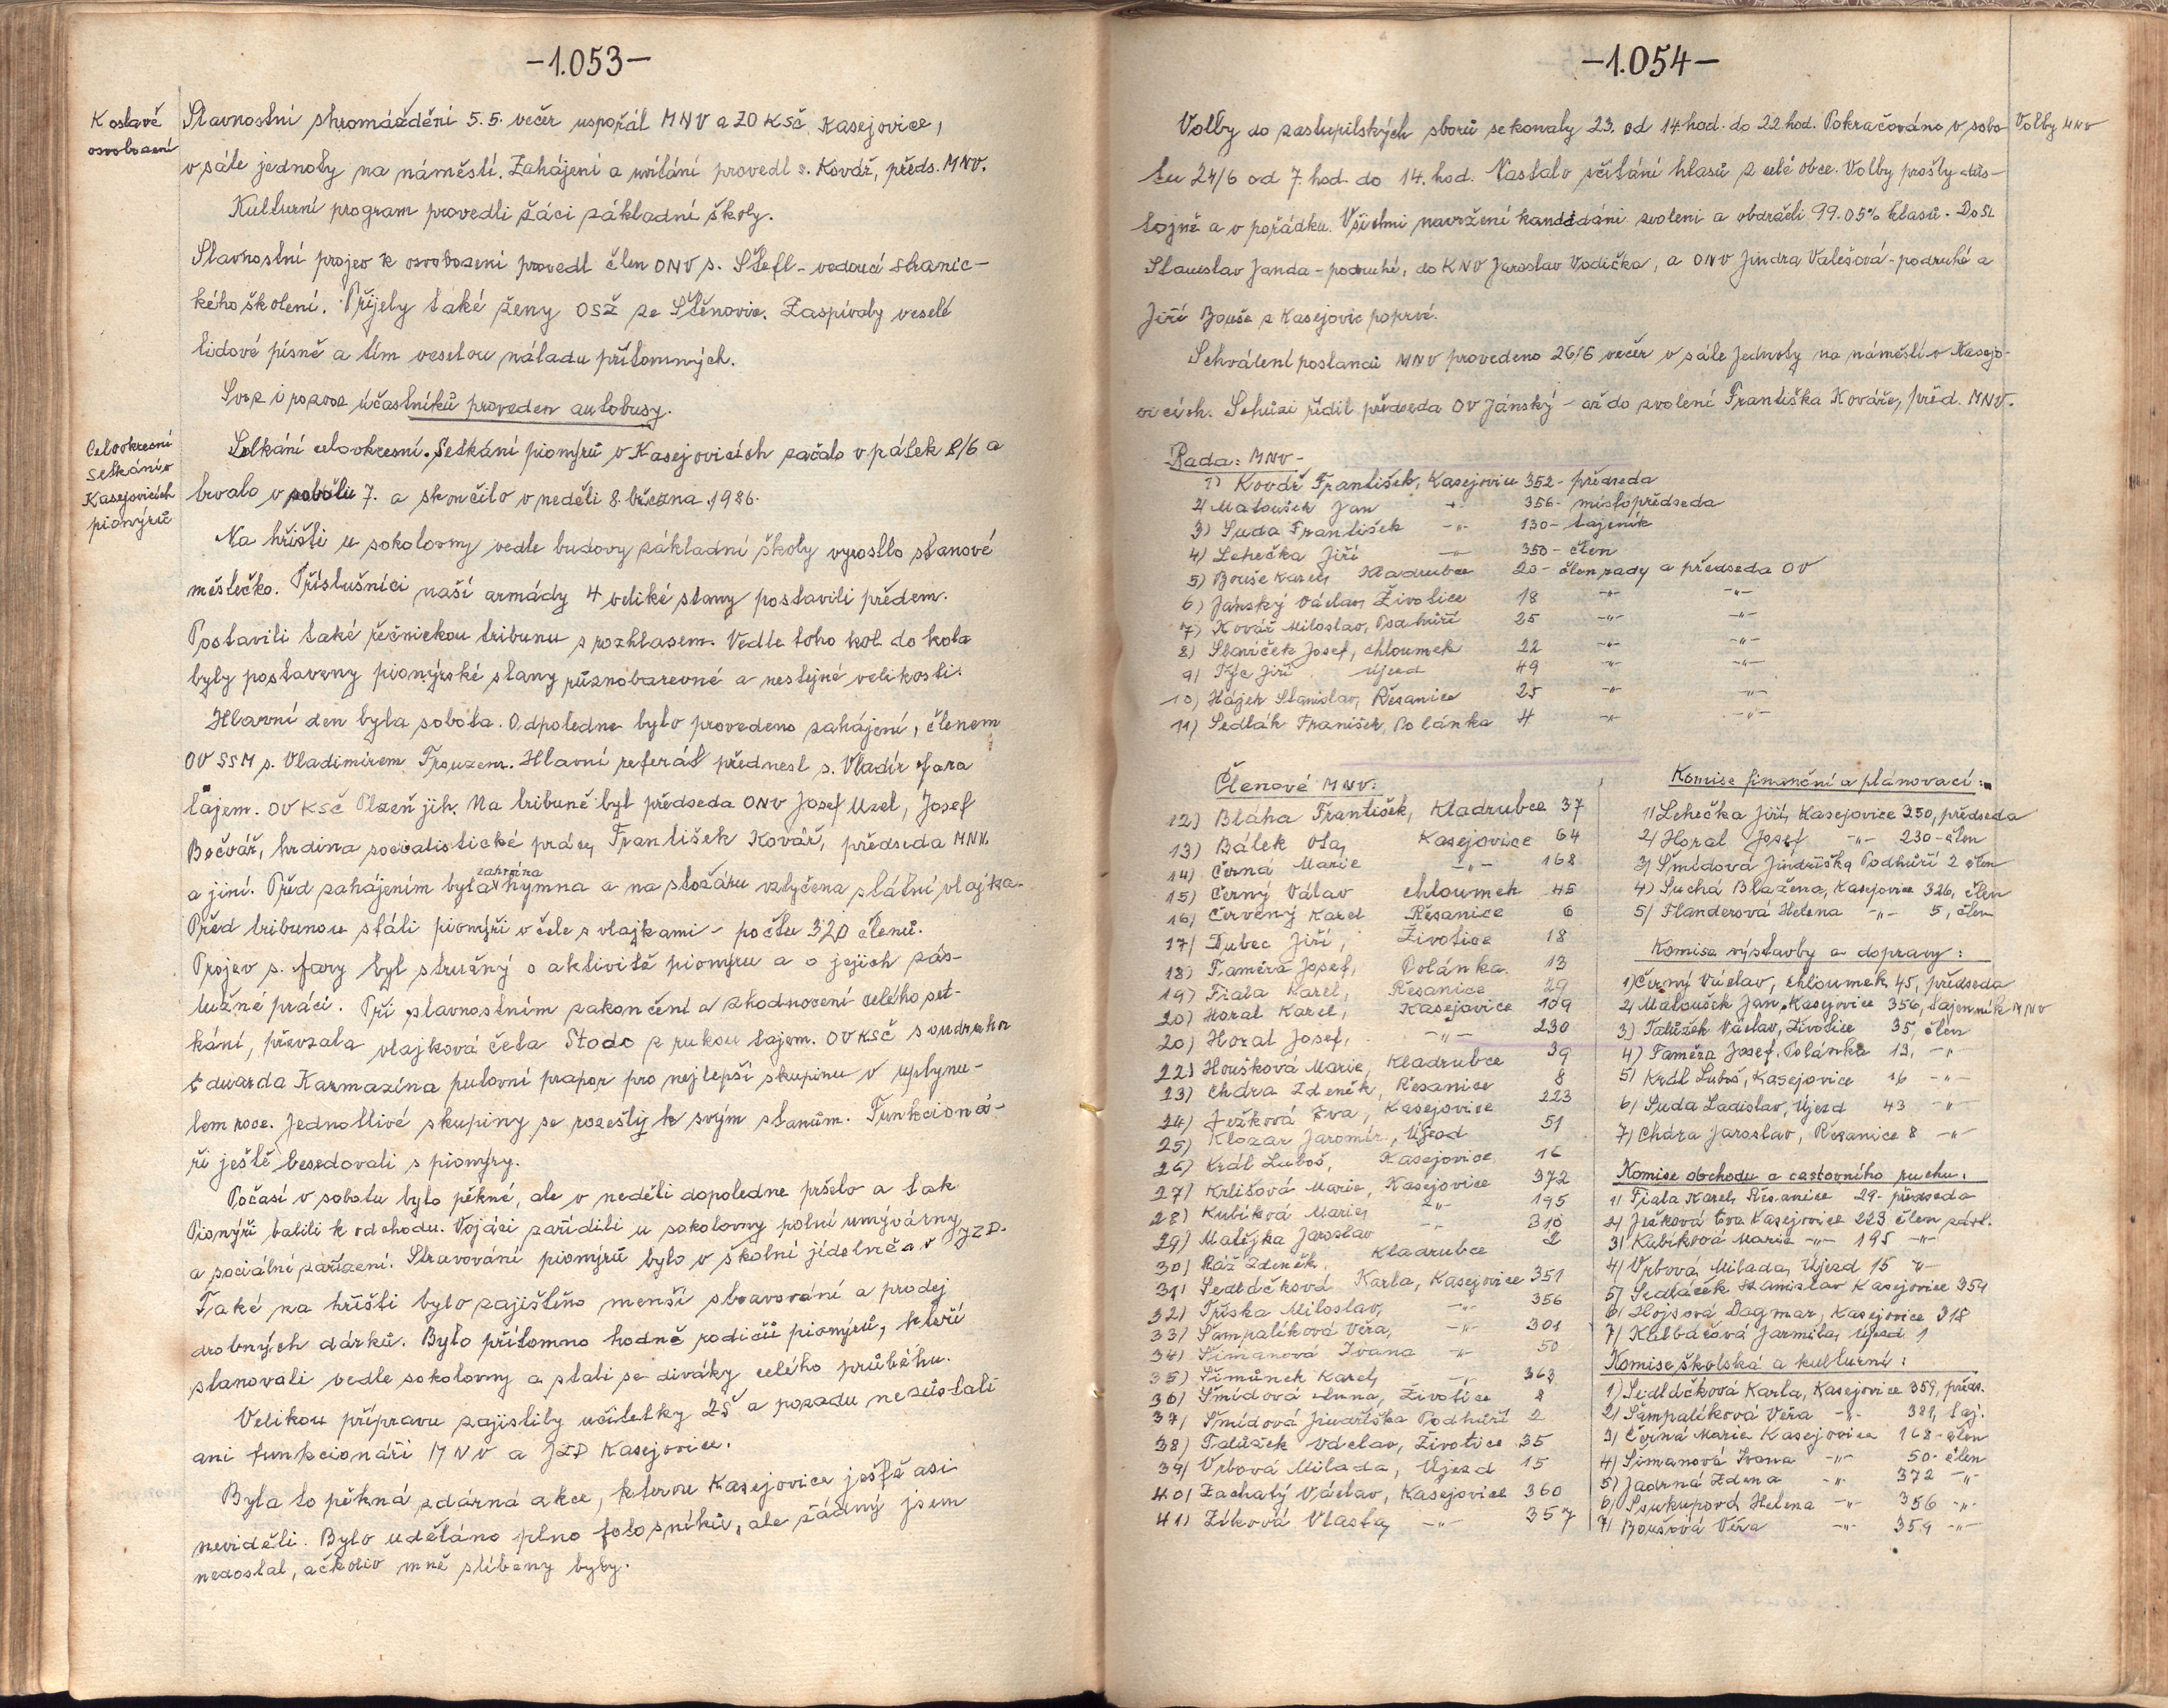 -1.053-
K oslavě
osvobození
Slavnostní shromáždění 5.5. večer uspořál MNV a ZO KSČ Kasejovice,
v sále jednoty na náměstí. Zahájení a uvítání provedl s. Kovář, předs. MNV.
Kulturní program provedli žáci základní školy.
Slavnostní projev k osvobození provedl člen ONV s. Štefl - vedoucí stranic-
kého školení. Přijely také ženy OSŽ ze Štěnovic. Zaspívaly veselé
lidové písně a tím veselou náladu přítomných.
Svoz i rozvoz účastníků proveden autobusy.
Celookresní
setkání v
Kasejovicích
pionýrů
Setkání celookresní. Setkání pionýrů v Kasejovicích začalo v pátek 8/6 a
trvalo v sobotu 7. a skončilo v neděli 8. března 1986.
Na hřišti u sokolovny vedle budovy základní školy vyrostlo stanové
městečko. Příslušníci naší armády 4 veliké stany postavili předem.
Postavili také řečnickou tribunu s rozhlasem. Vedle toho kol do kola
byly postaveny pionýrské stany různobarevné a nestejné velikosti.
Hlavní den byla sobota. Odpoledne bylo provedeno zahájení, členem
OV SSM s. Vladimírem Frouzem. Hlavní referát přednesl s. Vladír Jara
tajem. OV KSČ Plzeň jih. Na tribuně byl předseda ONV Josef Uzel, Josef
Bočvář, hrdina socialistické práce, František Kovář, předseda MNV.
a jiní. Před zahájením byla zahrána hymna a na stožáru vztyčena státní vlajka.
Před tribunou stáli pionýři v čele s vlajkami - počtu 320 členů.
Projev s. Jary byl stručný o aktivitě pionýru a o jejich zás-
lužné práci. Při slavnostním zakončení a zhodnocení celého set-
kání, převzala vlajková čela Stodo z rukou tajem. OV KSČ soudruha
Eduarda Karmazína putovní prapor pro nejlepší skupinu v uplynu-
lem roce. Jednotlivé skupiny se rozešly k svým stanům. Funkcioná-
ři ještě besedovali s pionýry.
Počasí v sobotu bylo pěkné, ale v neděli dopoledne pršelo a tak
Pionýři balili k odchodu. Vojáci zařídili u sokolovny polní umývárny
a sociální zařízení. Stravování pionýrů bylo v školní jídelně a v JZD.
Také na hřišti bylo zajištěno menší stravování a prodej
drobných dárků. Bylo přítomno hodně rodičů pionýrů, kteří
stanovali vedle sokolovny a stali se diváky celého průběhu.
Velikou přípravu zajistily učitelky ZŠ a pozadu nezůstali
ani funkcionáři MNV a JZD Kasejovice.
Byla to pěkná zdárná akce, kterou Kasejovice ještě asi
neviděli. Bylo uděláno plno fotosníků, ale žádný jsem
nedostal, ačkoliv mně slíbeny byly.
-1.054-
Volby MNV
Volby do zastupitelských sborů se konaly 23. od 14 hod. do 22 hod. Pokračováno v sobo-
tu 24/6 od 7. hod. do 14. hod. Nastalo sčítání hlasů z celé obce. Volby prošly důs-
tojně a v pořádku. Všichni navržení kandidáni zvoleni a obdrželi 99.05% hlasů. Do SL
Stanislav Janda - podruhé, do KNV Jaroslav Vodička, a ONV Jindra Valešová - podruhé a
Jiří Bouše z Kasejovic poprvé.
Schválení poslanců MNV provedeno 26/6 večer v sále Jednoty na náměstí v Kasejo-
vicích. Schůzi řídil předseda OV Jánský - až do zvolení Františka Kováře, před. MNV.
Rada: MNV -
1) Kovář František, Kasejovice 352 - předseda
2) Matoušek Jan -"- 356 - místopředseda
3) Suda František -"- 130 - tajeník
4) Lehečka Jiří -"- 350 - člen
5) Bouše Karel, Kladrubce 20 - člen rady a předseda OV
6) Jánský Václav, Životice 18 -"- -"-
7) Kovář Miloslav, Podhůří 25 -"- -"-
8) Slavíček Josef, Chloumek 22 -"- -"-
9) Týc Jiří Újezd 49 -"- -"-
10) Hájek Stanislav, Řesanice 25 -"- -"-
11) Sedlák Franišek, Polánka 4 -"- -"-
Členové MNV:
12) Bláha František, Kladrubce 37
13) Bálek Ota, Kasejovice 64
14) Černá Marie -"- 168
15) Černý Válav Chloumek 45
16) Červený Karel Řesanice 6
17) Dubec Jiří, Životice 18
18) Faměra Josef, Polánka 13
19) Fiala Karel, Řesanice 29
20) Horal Karel, Kasejovice 109
20) Horal Josef, -"- 230
22) Houšková Marie, Kladrubce 39
23) Chdra Zdeněk, Řesanice 8
24) Ježková Eva, Kasejovice 223
25) Klozar Jaromír, Újezd 51
26) Král Luboš, Kasejovice 16
27) Krlišová Marie, Kasejovice 372
28) Kubíková Marie, -"- 195
29) Matějka Jaroslav -"- 310
30) Ráž Zdeněk, Kladrubce 2
31) Sedláčková Karla, Kasejovice 351
32) Tříska Miloslav, -"- 356
33) Šampalíková Věra, -"- 301
34) Šimanová Ivana -"- 50
35) Šimůnek Karel, -"- 363
36) Šmídová Anna, Životice 8
37) Šmídová Jindřiška Podhůří 2
38) Talůžek Václav, Životice 35
39) Vrbová Milada, Újezd 15
40) Zachatý Václav, Kasejovice 360
41) Zíková Vlasta, -"- 357
Komise finanční a plánovací:
1) Lehečka Jiří, Kasejovice 350, předseda
2) Horal Josef -"- 230 - člen
3) Šmídová Jindřiška, Podhůří 2 člen
4) Suchá Blažena, Kasejovice 326, člen
5) Flanderová Helena -"- 5, člen
Komise výstavby a dopravy:
1) Černý Václav, Chloumek 45, předseda
2) Matoušek Jan, Kasejovice 356, tajenník MNV
3) Talůžek Václav, Životice 35, člen
4) Faměra Josef, Polánka 13, -"-
5) Král Luboš, Kasejovice 16 -"-
6) Suda Ladislav, Újezd 43 -"-
7) Chára Jaroslav, Řesanice 8 -"-
Komise obchodu a cestovního ruchu.
1) Fiala Karel, Řesanice 29 - předseda
2) Ježková Eva Kasejovice 223 člen zást.
3) Kubíková Marie -"- 195 -"-
4) Vrbová Milada, Újezd 15 -"-
5) Sedláček Stanislav Kasejovice 359
6) Hojsová Dagmar, Kasejovice 318
7) Kulbáčová Jarmila, Újezd 1
Komise školská a kulturní:
1) Sedláčková Karla, Kasejovice 359, předs.
2) Šampalíková Věra -"- 381, taj.
3) Černá Marie Kasejovice 168 - člen
4) Šimanová Ivana -"- 50 - člen
5) Jadrná Zdena -"- 372 -"-
6) Soukupová Helena -"- 356 -"-
7) Boušová Věra -"- 359 -"-